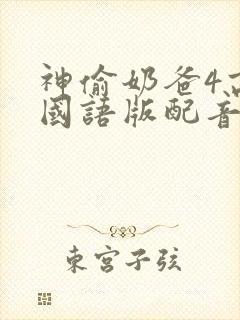 神偷奶爸4
國語版配音
東宮子弦